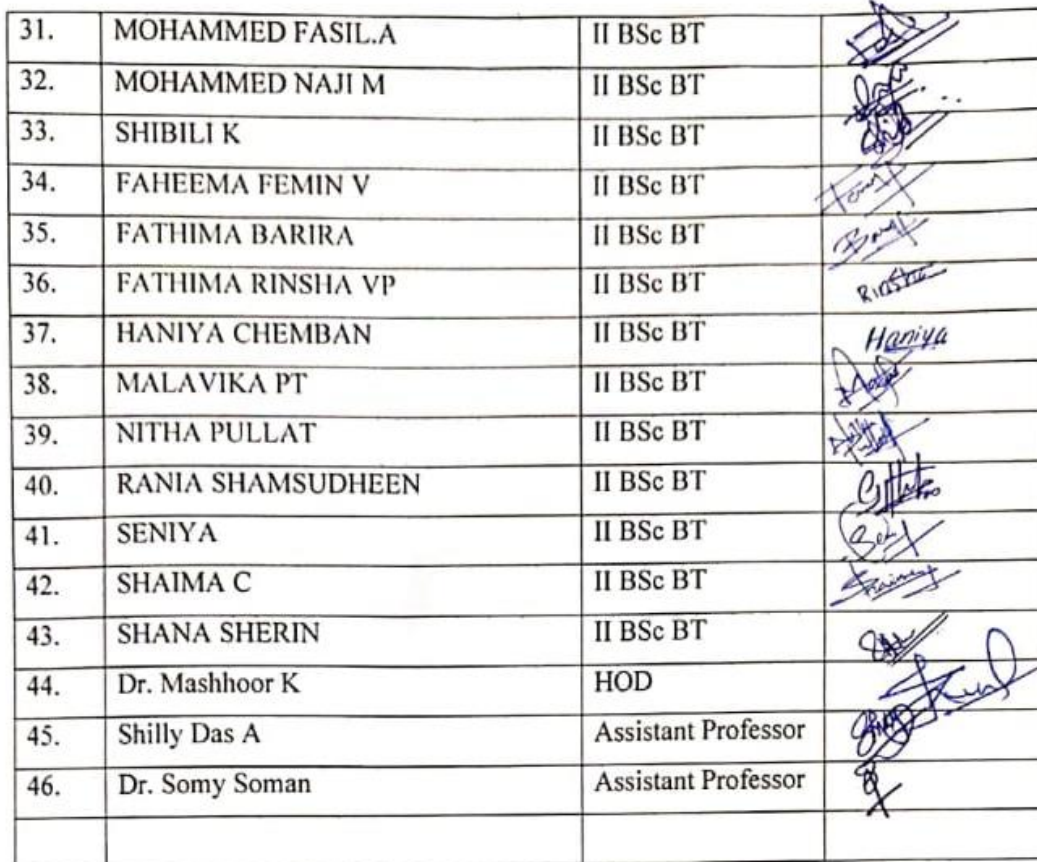 31. MOHAMMED FASIL.A II BSc BT
32. MOHAMMED NAJI M II BSc BT
33. SHIBILI K II BSc BT
34. FAHEEMA FEMIN V II BSc BT
35. FATHIMA BARIRA II BSc BT
36. FATHIMA RINSHA VP II BSc BT Rinsha
37. HANIYA CHEMBAN II BSc BT Haniya
38. MALAVIKA PT II BSc BT
39. NITHA PULLAT II BSc BT
40. RANIA SHAMSUDHEEN II BSc BT
41. SENIYA II BSc BT
42. SHAIMA C II BSc BT
43. SHANA SHERIN II BSc BT
44. Dr. Mashhoor K HOD
45. Shilly Das A Assistant Professor
46. Dr. Somy Soman Assistant Professor